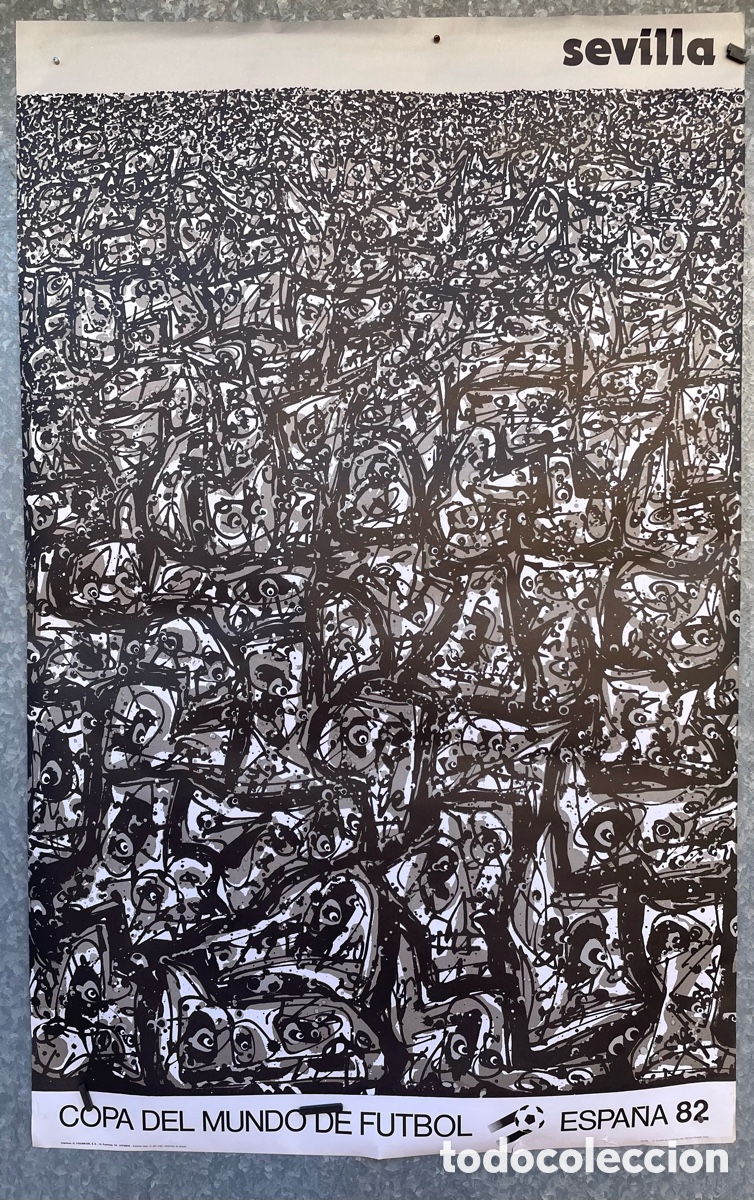 sevilla
COPA DEL MUNDO DE FUTBOL ESPAÑA 82
todocoleccion